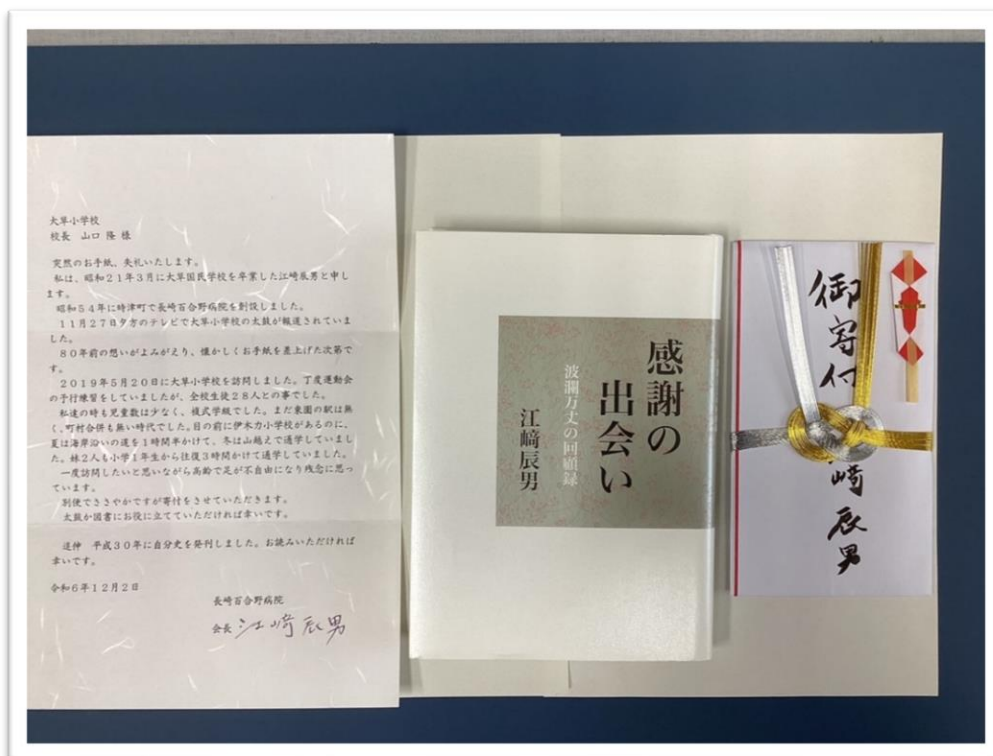 大草小学校
校長 山口 隆 様
突然のお手紙、失礼いたします。
私は、昭和21年3月に大草国民学校を卒業した江﨑辰男と申し
ます。
昭和54年に時津町で長崎百合野病院を創設しました。
11月27日夕方のテレビで大草小学校の太鼓が報道されていま
した。
80年前の想いがよみがえり、懐かしくお手紙を差上げた次第で
す。
2019年5月20日に大草小学校を訪問しました。丁度運動会
の予行練習をしていましたが、全校生徒28人との事でした。
私達の時も児童数は少なく、複式学級でした。まだ東園の駅は無
く、町村合併も無い時代でした。目の前に伊木力小学校があるのに、
夏は海岸沿いの道を1時間半かけて、冬は山越えで通学していまし
た。妹2人も小学1年生から往復3時間かけて通学していました。
一度訪問したいと思いながら高齢で足が不自由になり残念に思っ
ています。
別便でささやかですが寄付をさせていただきます。
太鼓か図書にお役に立てていただければ幸いです。
追伸 平成30年に自分史を発刊しました。お読みいただければ
幸いです。
令和6年12月2日
長崎百合野病院
会長 江﨑辰男
感謝の
出会い
波瀾万丈の回顧録
江﨑辰男
御寄付
﨑辰男